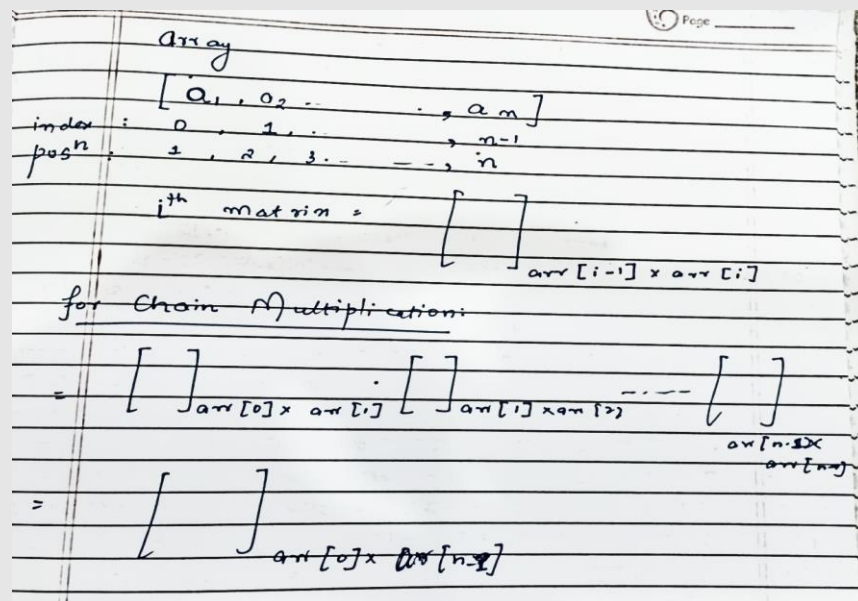 Page
array
[ a1, a2 .. . . , an ]
index : 0 , 1, . . , n-1
posn : 1 , 2 , 3 . . - - - , n
ith matrix = [ ] arr [i-1] x arr [i]
for Chain Multiplication:
= [ ] arr [0] x arr [1] . [ ] arr [1] x arr [2] - . - - [ ]
= [ ] arr [0] x arr [n-1]